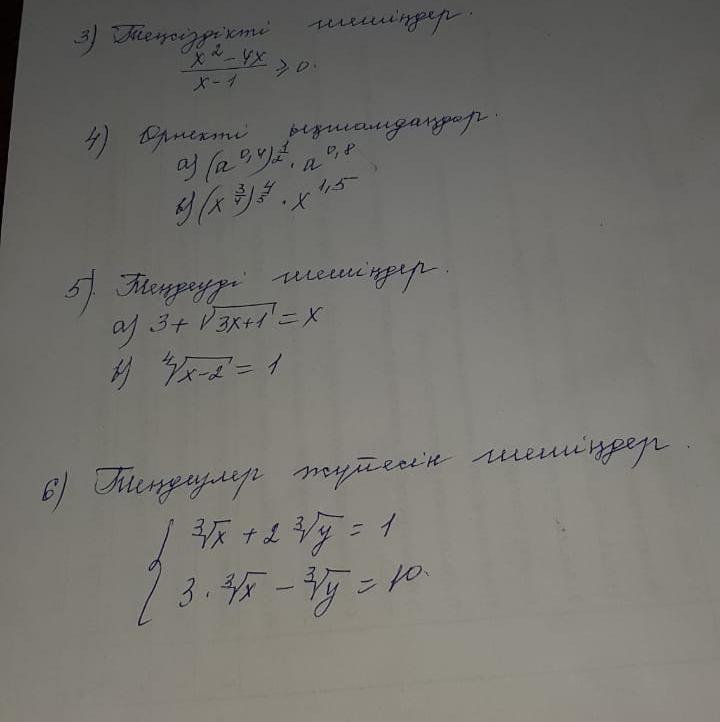 3) Теңсіздікті шешіңдер.
\frac{x^2-4x}{x-1} ≥ 0.
4) Өрнекті ықшамдаңдар.
а) (a^{0,4})^{\frac{1}{2}} · a^{0,8}
в) (x^{\frac{3}{4}})^{\frac{4}{5}} · x^{1,5}
5). Теңдеуді шешіңдер.
а) 3+√{3x+1} = x
в) ∜{x-2} = 1
6) Теңдеулер жүйесін шешіңдер.
{ ∛x + 2∛y = 1
3·∛x - ∛y = 10.